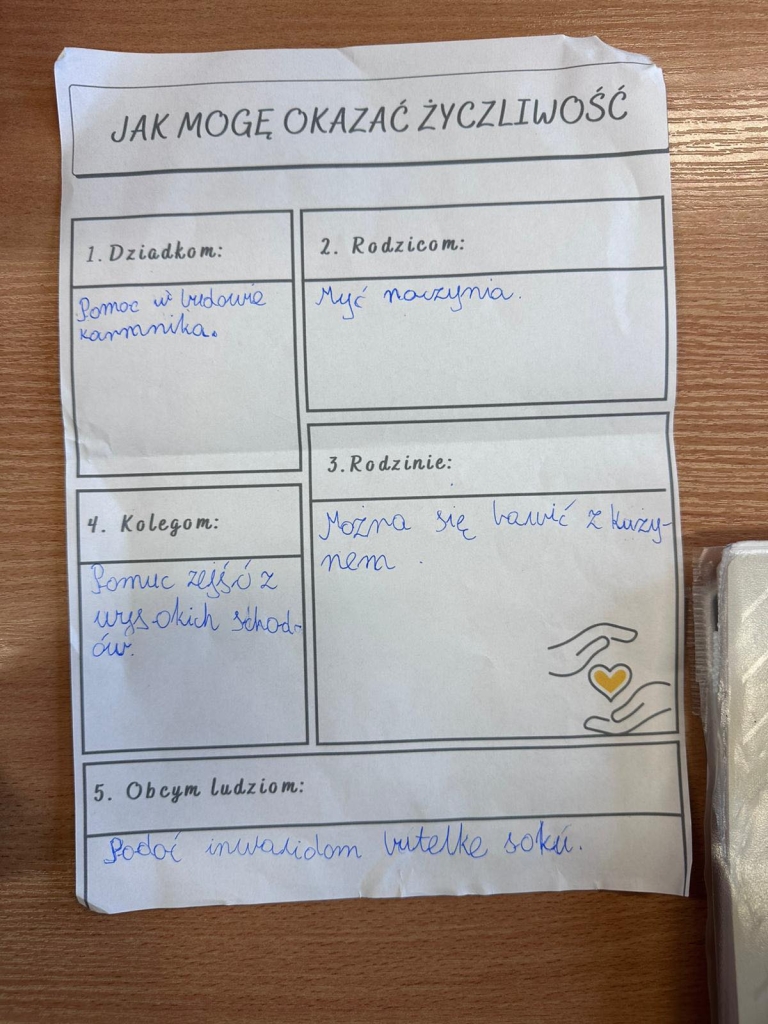 JAK MOGĘ OKAZAĆ ŻYCZLIWOŚĆ
1. Dziadkom:
Pomoc w budowie
karmnika.
2. Rodzicom:
Myć naczynia.
3. Rodzinie:
Można się bawić z kuzy-
nem.
4. Kolegom:
Pomuc zejść z
wysokich schod-
ów.
5. Obcym ludziom:
Podać inwalidom butelkę soku.